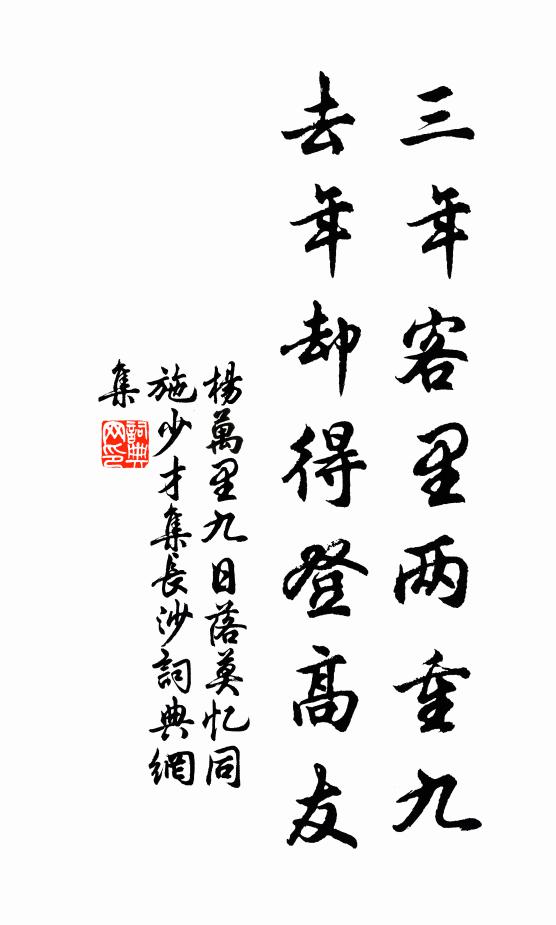 三年客里两重九
去年却得登高友
楊萬里九日落莫忆同
施少才集長沙詞典網
集
詞典网印